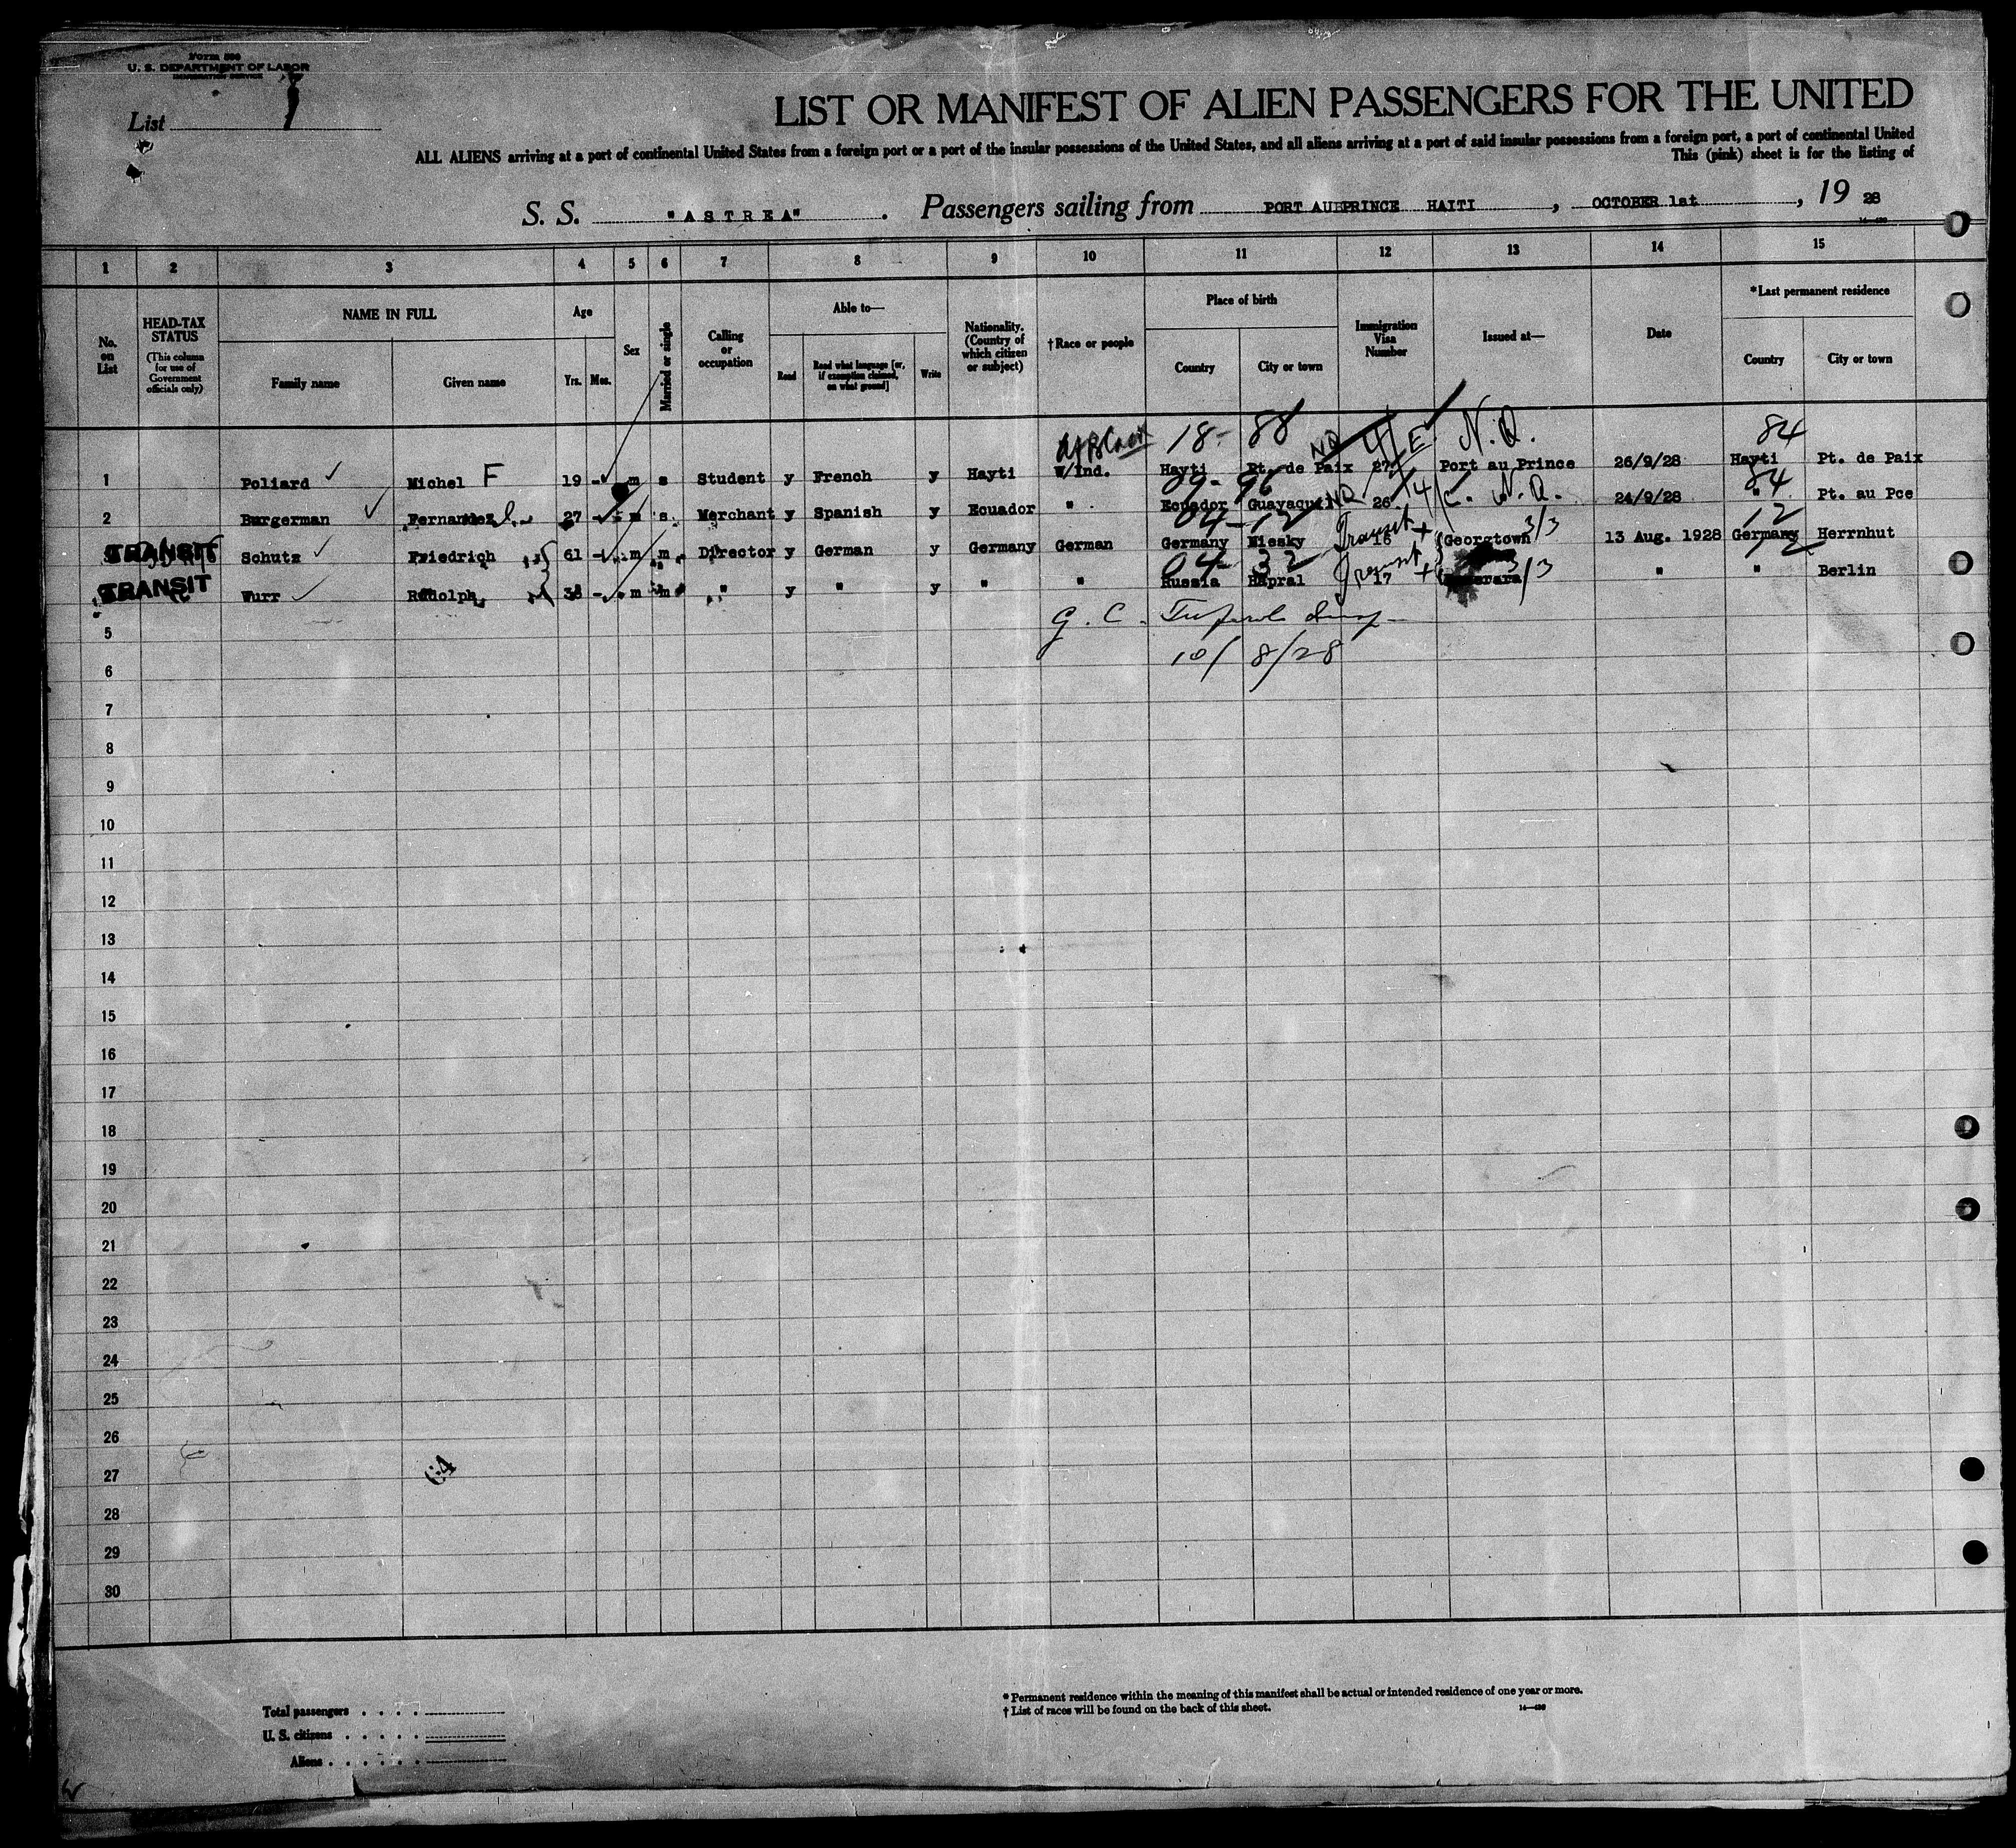 Form 500
U. S. DEPARTMENT OF LABOR
IMMIGRATION SERVICE
List 1
LIST OR MANIFEST OF ALIEN PASSENGERS FOR THE UNITED
ALL ALIENS arriving at a port of continental United States from a foreign port or a port of the insular possessions of the United States, and all aliens arriving at a port of said insular possessions from a foreign port, a port of continental United
This (pink) sheet is for the listing of
S. S. "ASTREA" . Passengers sailing from PORT AUEPRINCE HAITI , OCTOBER 1st , 19 28
1 2 3 4 5 6 7 8 9 10 11 12 13 14 15
No. on List
HEAD-TAX STATUS
(This column for use of Government officials only)
NAME IN FULL
Family name Given name
Age
Yrs. Mos.
Sex
Married or single
Calling or occupation
Able to—
Read Read what language [or, if exemption claimed, on what ground] Write
Nationality. (Country of which citizen or subject)
†Race or people
Place of birth
Country City or town
Immigration Visa Number
Issued at—
Date
*Last permanent residence
Country City or town
18- 88 4/E N.Q. 84
1 Poliard Michel F 19 - m s Student y French y Hayti W/Ind. Hayti Pt. de Paix 27 Port au Prince 26/9/28 Hayti Pt. de Paix
96 N.Q. 84
2 Burgerman 27 - m s Merchant y Spanish y Ecuador " Ecuador Guayaquil 26 24/9/28 " Pt. au Pce
04-12 Transit 3/3 12
TRANSIT Schutz Friedrich 61 - m m Director y German y Germany German Germany Niesky 16 Georgtown 13 Aug. 1928 Germany Herrnhut
04- 32 Transit 3/3
TRANSIT Wurr Rudolph 38 - m m " y " y " " Russia Hapral 17 " " Berlin
5 G. C.
6 10/8/28
7
8
9
10
11
12
13
14
15
16
17
18
19
20
21
22
23
24
25
26
27 64
28
29
30
Total passengers . . . .
U. S. citizens . . . . .
Aliens . . . . . .
* Permanent residence within the meaning of this manifest shall be actual or intended residence of one year or more.
† List of races will be found on the back of this sheet.